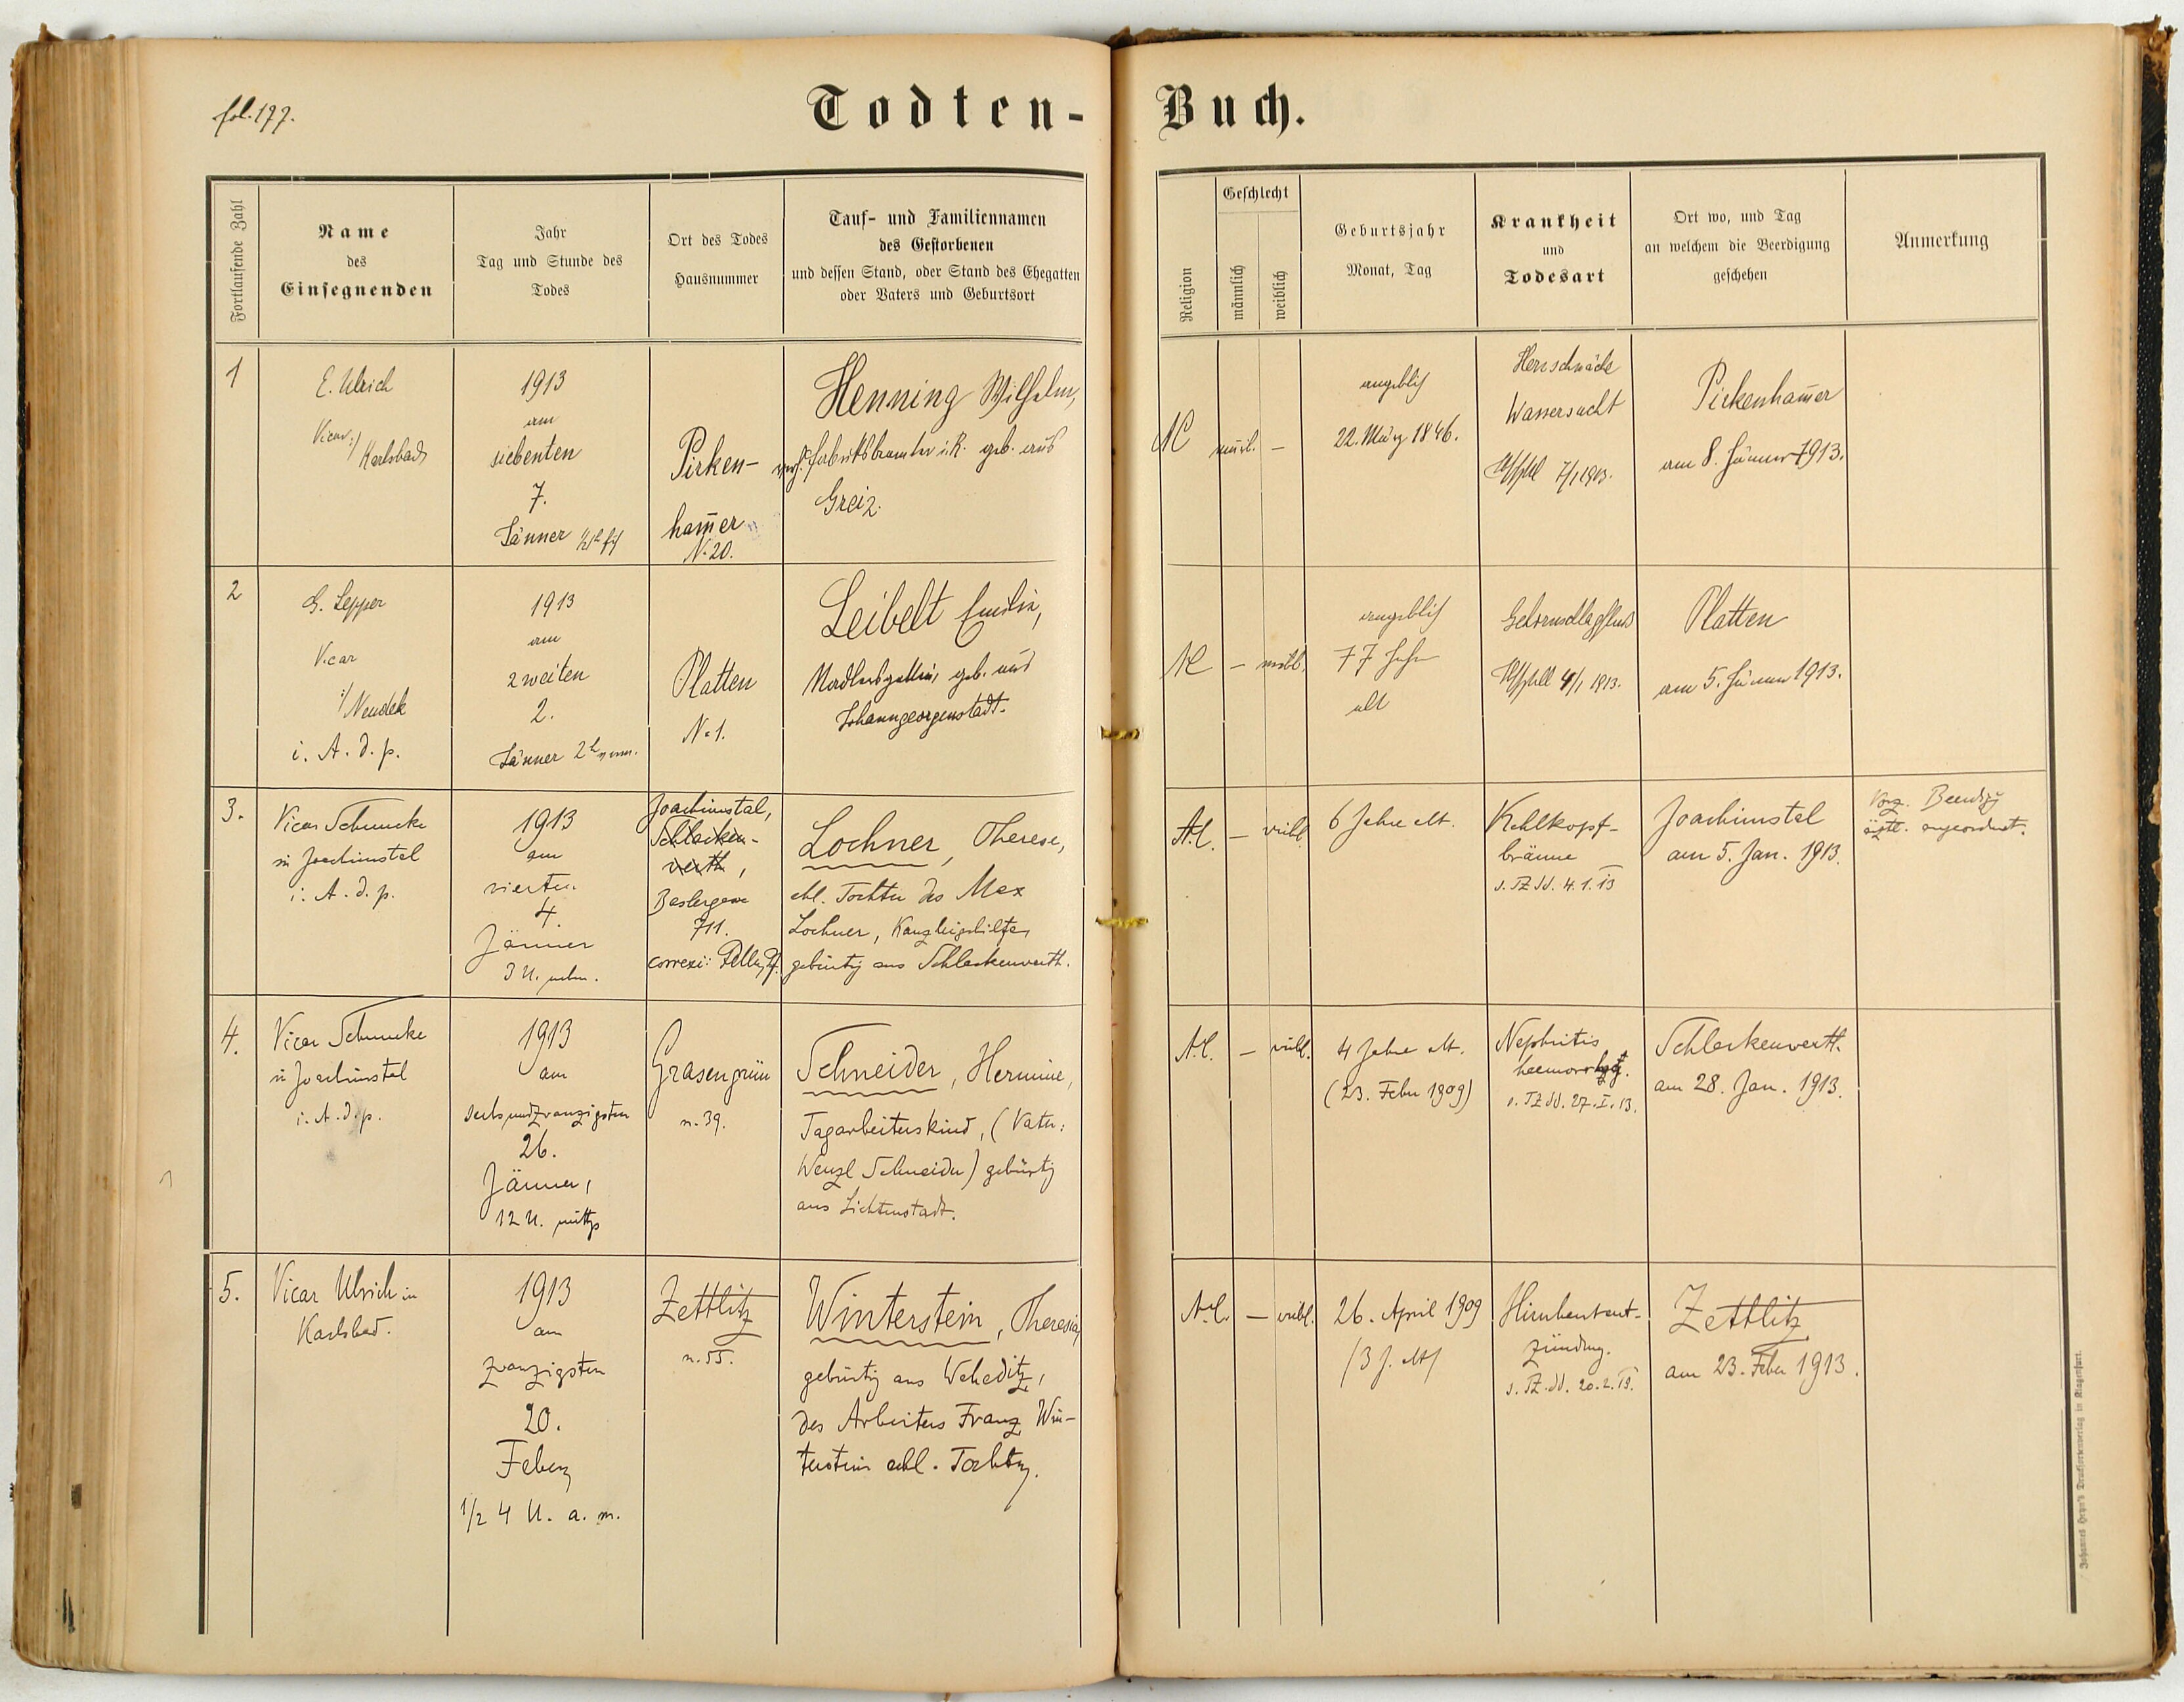 fol. 177.
Todten-Buch.
Fortlaufende Zahl
Name
des
Einsegnenden
Jahr
Tag und Stunde des
Todes
Ort des Todes
Hausnummer
Tauf- und Familiennamen
des Gestorbenen
und dessen Stand, oder Stand des Ehegatten
oder Vaters und Geburtsort
Religion
Geschlecht
männlich
weiblich
Geburtsjahr
Monat, Tag
Krankheit
und
Todesart
Ort wo, und Tag
an welchem die Beerdigung
geschehen
Anmerkung
1
E. Ulrich
Vicar :/
Karlsbad
1913
am
siebenten
7.
Jänner
Pirken-
ham̄er
N. 20.
Henning Wilhelm,
Fabriksbeamter i. R. geb. aus
Greiz.
AC
männl.
—
angeblich
22. März 1846.
Herzschwäche
Wassersucht
7/1 1913.
Pirkenham̄er
am 8. Jänner 1913.
2
G. Lepper
Vicar
:/ Neudek
i. A. d. p.
1913
am
zweiten
2.
Jänner 2h
Platten
N. 1.
Leibelt Emilie,
geb. aus
Johanngeorgenstadt.
AC
—
weibl.
angeblich
77 Jahre
alt
Gehirnschlagfluß
4/1 1913.
Platten
am 5. Jänner 1913.
3.
Vicar Schmucke
in Joachimstal
i. A. d. p.
1913
am
vierten
4.
Jänner
3 U. nchm.
Joachimstal,
Schlacken-
werth,
711.
correxi:
Lochner, Therese,
ehl. Tochter des Max
Lochner, Kanzleigehilfe,
gebürtig aus Schlackenwerth.
A.C.
—
weibl.
6 Jahre alt.
Kehlkopf-
bräune
s. TZ dd. 4. 1. 13
Joachimstal
am 5. Jan. 1913.
Vorz. Beerdigg
ärztl. angeordnet.
4.
Vicar Schmucke
in Joachimstal
i. A. d. p.
1913
am
sechsundzwanzigsten
26.
Jänner,
12 U. mittgs
Grasengrün
n. 39.
Schneider, Hermine,
Tagarbeiterskind, (Vater:
Wenzl Schneider) gebürtig
aus Lichtenstadt.
A.C.
—
weibl.
4 Jahre alt.
(23. Feber 1909)
Nephritis
s. TZ dd. 27. I. 13.
Schlackenwerth
am 28. Jan. 1913.
5.
Vicar Ulrich in
Karlsbad.
1913
am
zwanzigsten
20.
Feber,
1/2 4 U. a. m.
Zettlitz
n. 55.
Winterstein, Theresia,
gebürtig aus Weheditz,
des Arbeiters Franz Win-
terstein ehl. Tochter.
A.C.
—
weibl.
26. April 1909
/3 J. alt/
Hirnhautent-
zündung.
s. TZ. dd. 20. 2. 13.
Zettlitz
am 23. Feber 1913.
Johannes Heyn's Drucksortenverlag in Klagenfurt.